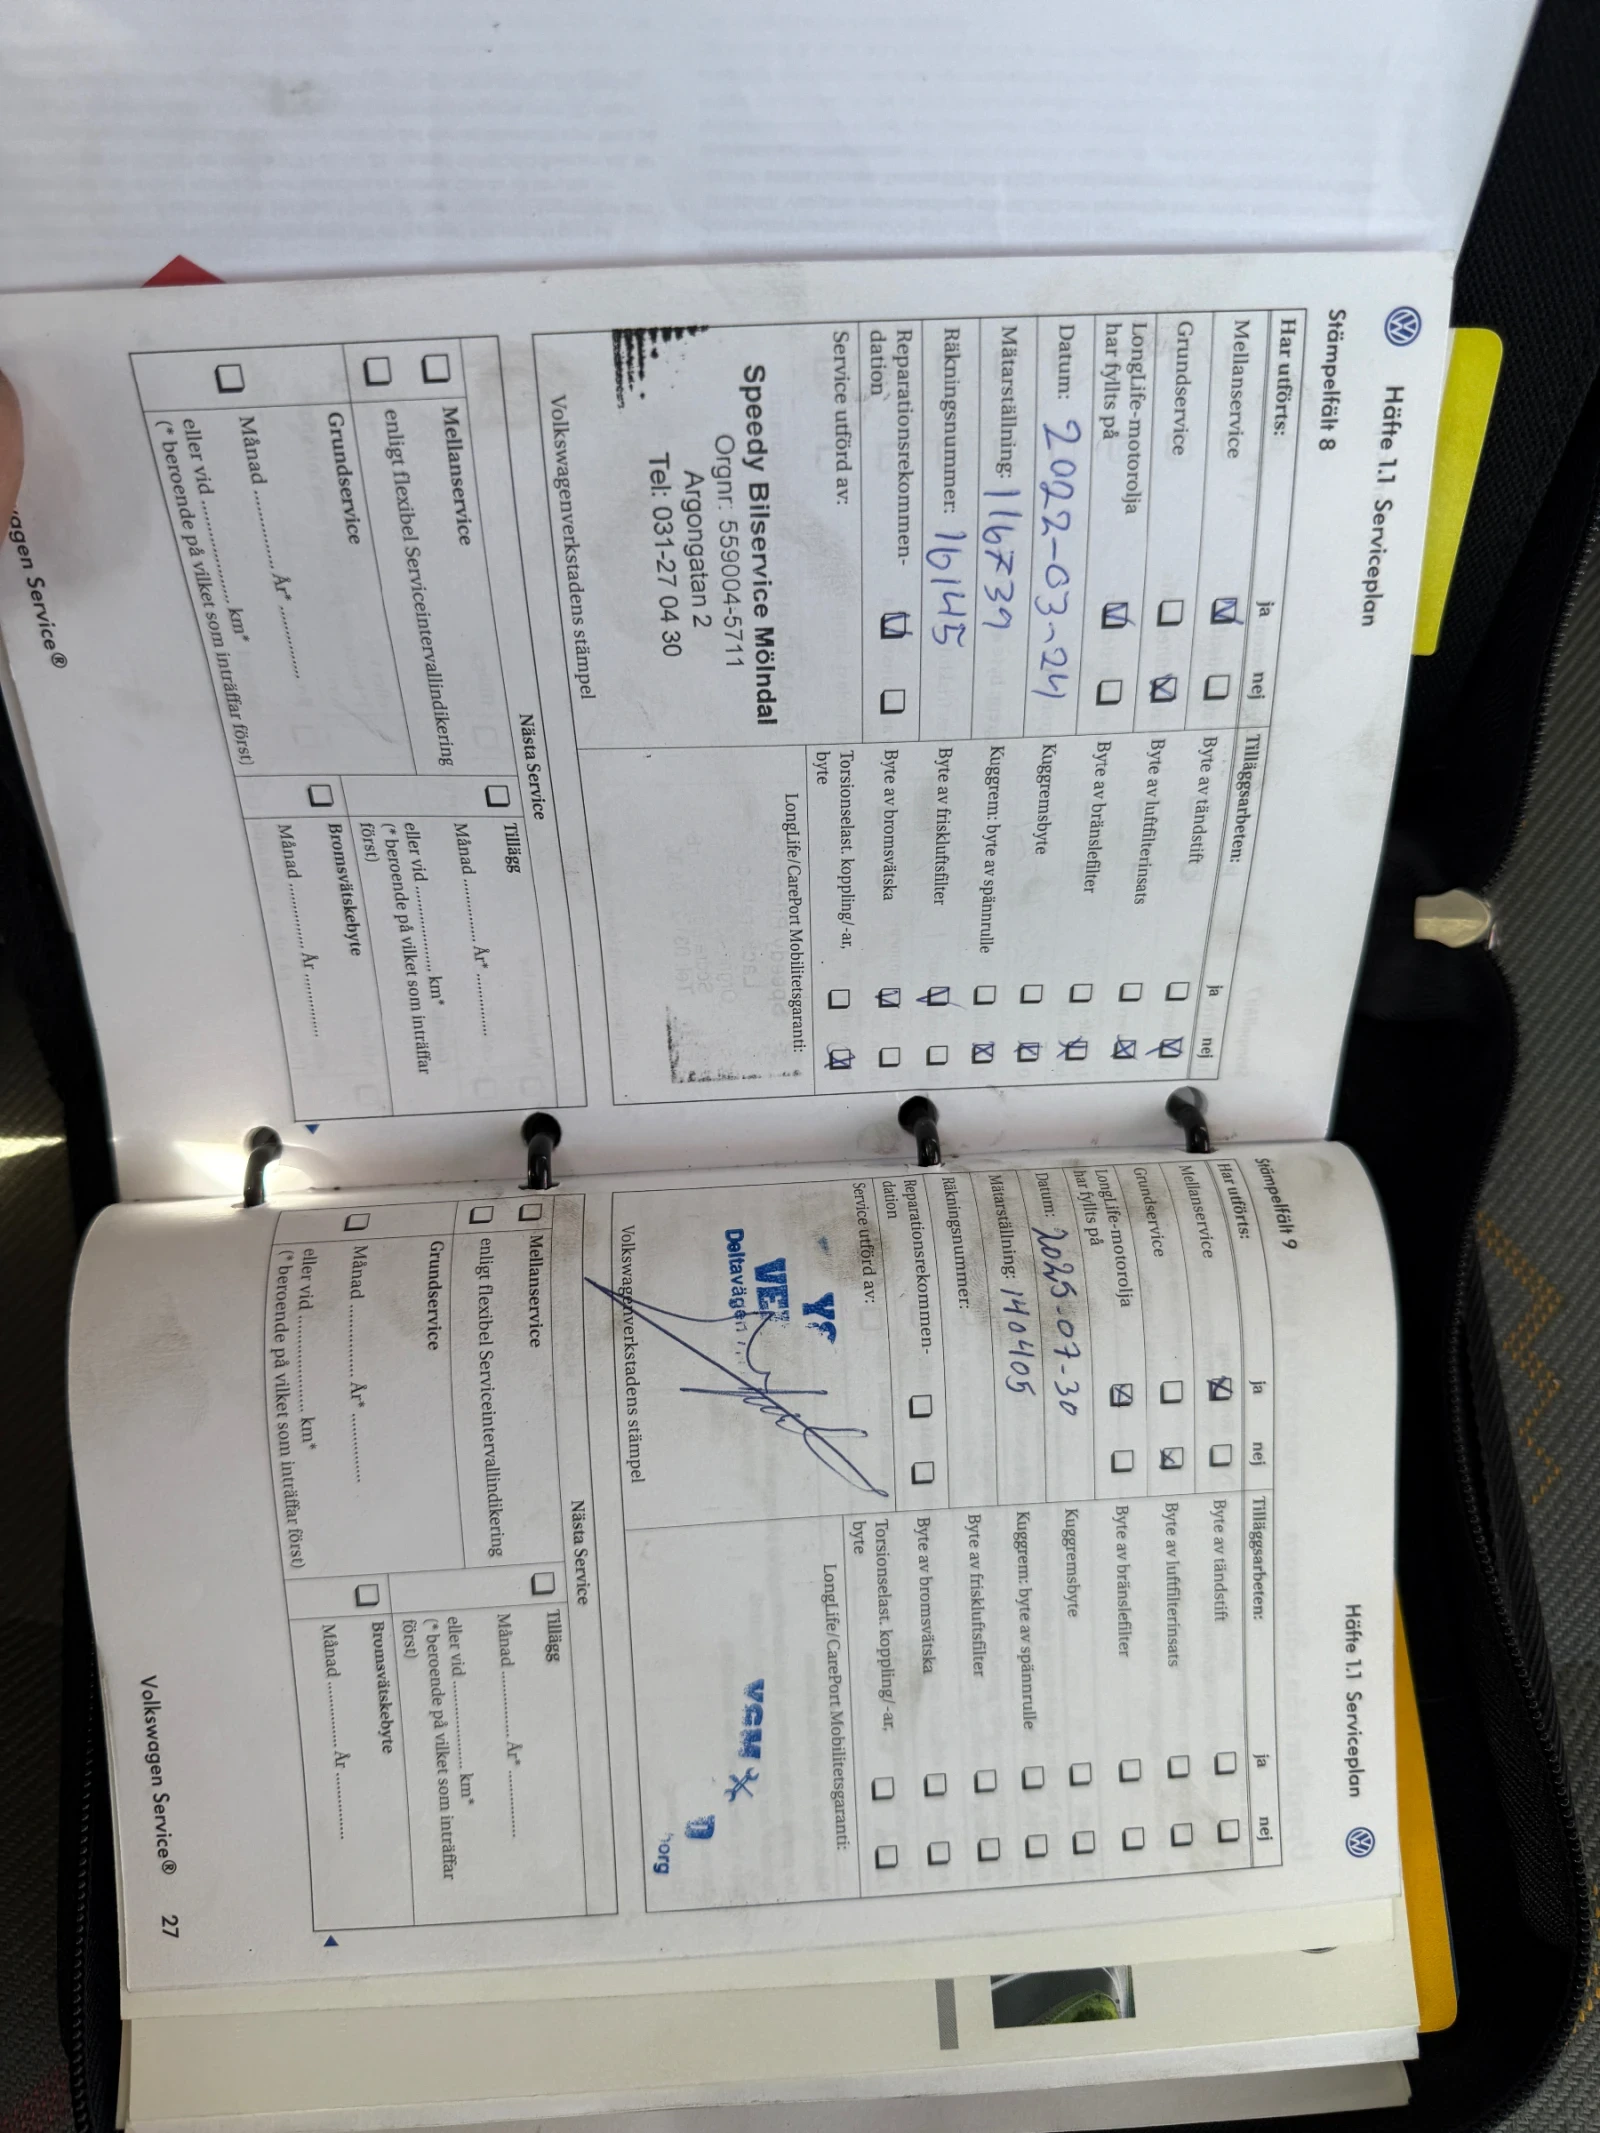 Häfte 1.1 Serviceplan
Stämpelfält 8
Har utförts:
ja
nej
Mellanservice
Grundservice
LongLife-motorolja
har fyllts på
Datum: 2022-03-24
Mätarställning: 116739
Räkningsnummer: 16145
Reparationsrekommen-
dation
Service utförd av:
Speedy Bilservice Mölndal
Orgnr: 559004-5711
Argongatan 2
Tel: 031-27 04 30
Volkswagenverkstadens stämpel
Tilläggsarbeten:
ja
nej
Byte av tändstift
Byte av luftfilterinsats
Byte av bränslefilter
Kuggremsbyte
Kuggrem: byte av spännrulle
Byte av friskluftsfilter
Byte av bromsvätska
Torsionselast. koppling/-ar,
byte
LongLife/CarePort Mobilitetsgaranti:
Nästa Service
Mellanservice
enligt flexibel Serviceintervallindikering
Grundservice
Månad ............... År* ...............
eller vid .................. km*
(* beroende på vilket som inträffar först)
Tillägg
Månad ............... År* ...............
eller vid .................. km*
(* beroende på vilket som inträffar
först)
Bromsvätskebyte
Månad ............... År ...............
agen Service®
Häfte 1.1 Serviceplan
Stämpelfält 9
Har utförts:
ja
nej
Mellanservice
Grundservice
LongLife-motorolja
har fyllts på
Datum: 2025-07-30
Mätarställning: 140405
Räkningsnummer:
Reparationsrekommen-
dation
Service utförd av:
Deltavägen
Volkswagenverkstadens stämpel
Tilläggsarbeten:
ja
nej
Byte av tändstift
Byte av luftfilterinsats
Byte av bränslefilter
Kuggremsbyte
Kuggrem: byte av spännrulle
Byte av friskluftsfilter
Byte av bromsvätska
Torsionselast. koppling/-ar,
byte
LongLife/CarePort Mobilitetsgaranti:
Nästa Service
Mellanservice
enligt flexibel Serviceintervallindikering
Grundservice
Månad ............... År* ...............
eller vid .................. km*
(* beroende på vilket som inträffar först)
Tillägg
Månad ............... År* ...............
eller vid .................. km*
(* beroende på vilket som inträffar
först)
Bromsvätskebyte
Månad ............... År ...............
Volkswagen Service® 27